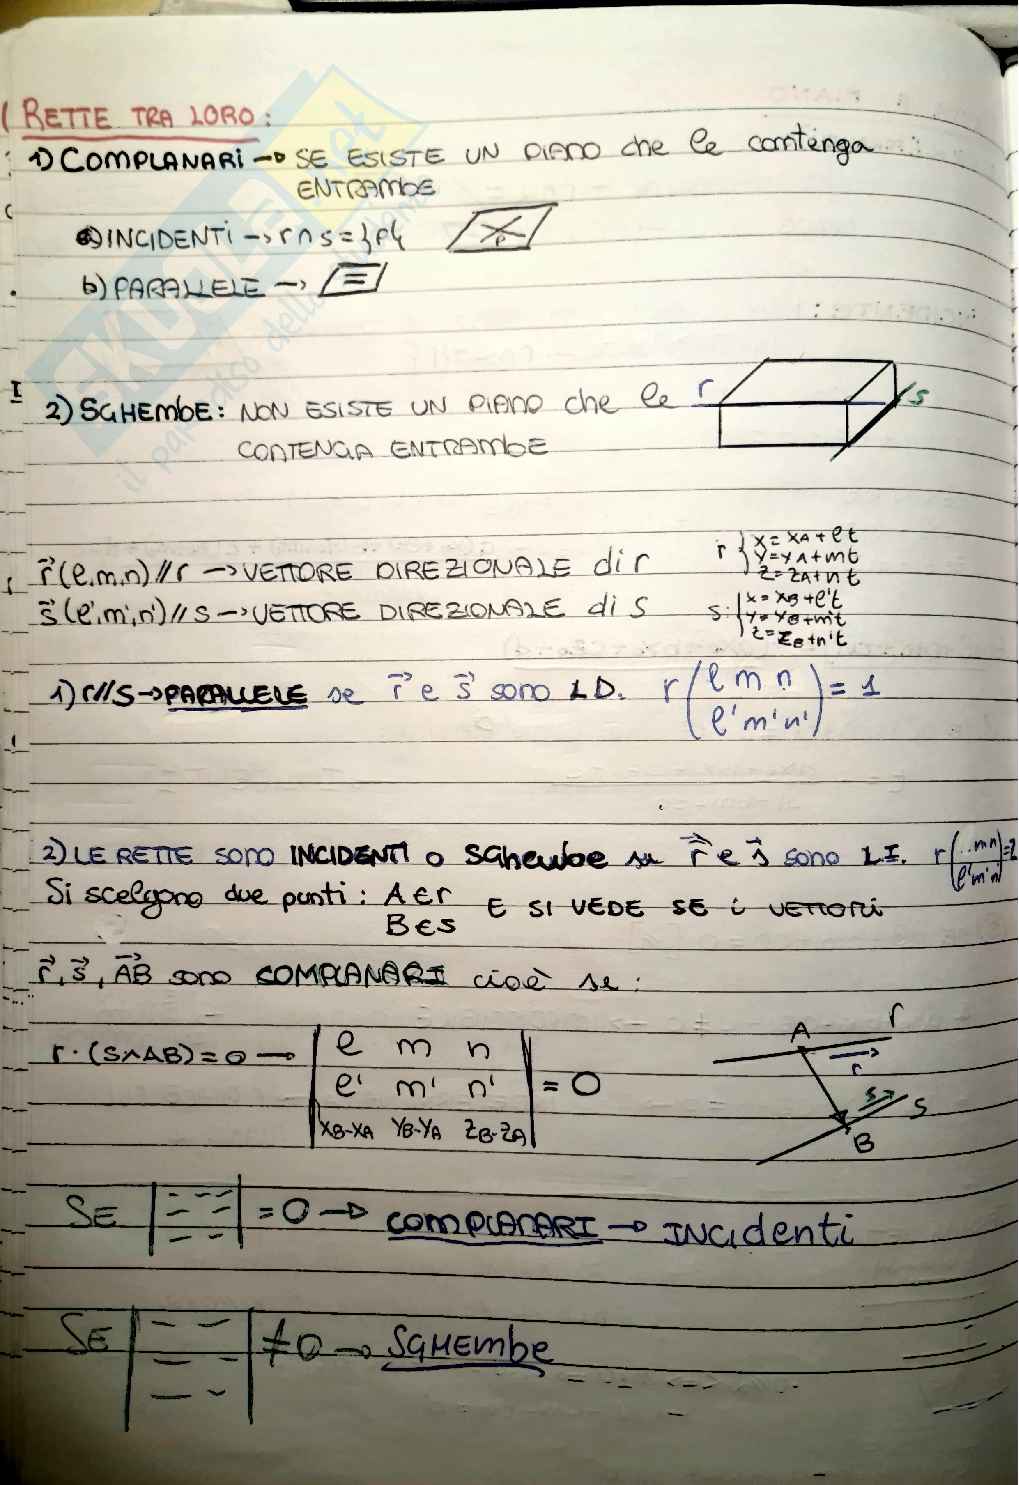 RETTE TRA LORO:
1) COMPLANARI → SE ESISTE UN PIANO che le contenga
ENTRAMBE
a) INCIDENTI → r ∩ s = }P{
P
b) PARALLELE →
2) SGHEMBE: NON ESISTE UN PIANO che le
CONTENGA ENTRAMBE
r
s
r⃗ (l, m, n) // r → VETTORE DIREZIONALE di r
s⃗ (l', m', n') // s → VETTORE DIREZIONALE di s
r { x = xA + lt
y = yA + mt
z = zA + nt
s: { x = xB + l't
y = yB + m't
z = zB + n't
1) r // s → PARALLELE se r⃗ e s⃗ sono L.D. r ( l m n
l' m' n' ) = 1
2) LE RETTE SONO INCIDENTI o SGHEMBE se r⃗ e s⃗ sono L.I. r ( .. m n
l' m' n' ) = 2
Si scelgono due punti: A ∈ r
B ∈ s E SI VEDE SE i VETTORI
r⃗, s⃗, AB⃗ sono COMPLANARI cioè se:
r · (S∧AB) = 0 → | l m n
l' m' n'
xB-xA yB-yA zB-zA | = 0
A
r
r
s
s
B
SE | --- | = 0 → COMPLANARI → INCIDENTI
SE | --- | ≠ 0 → SGHEMBE
SKUOLA.net